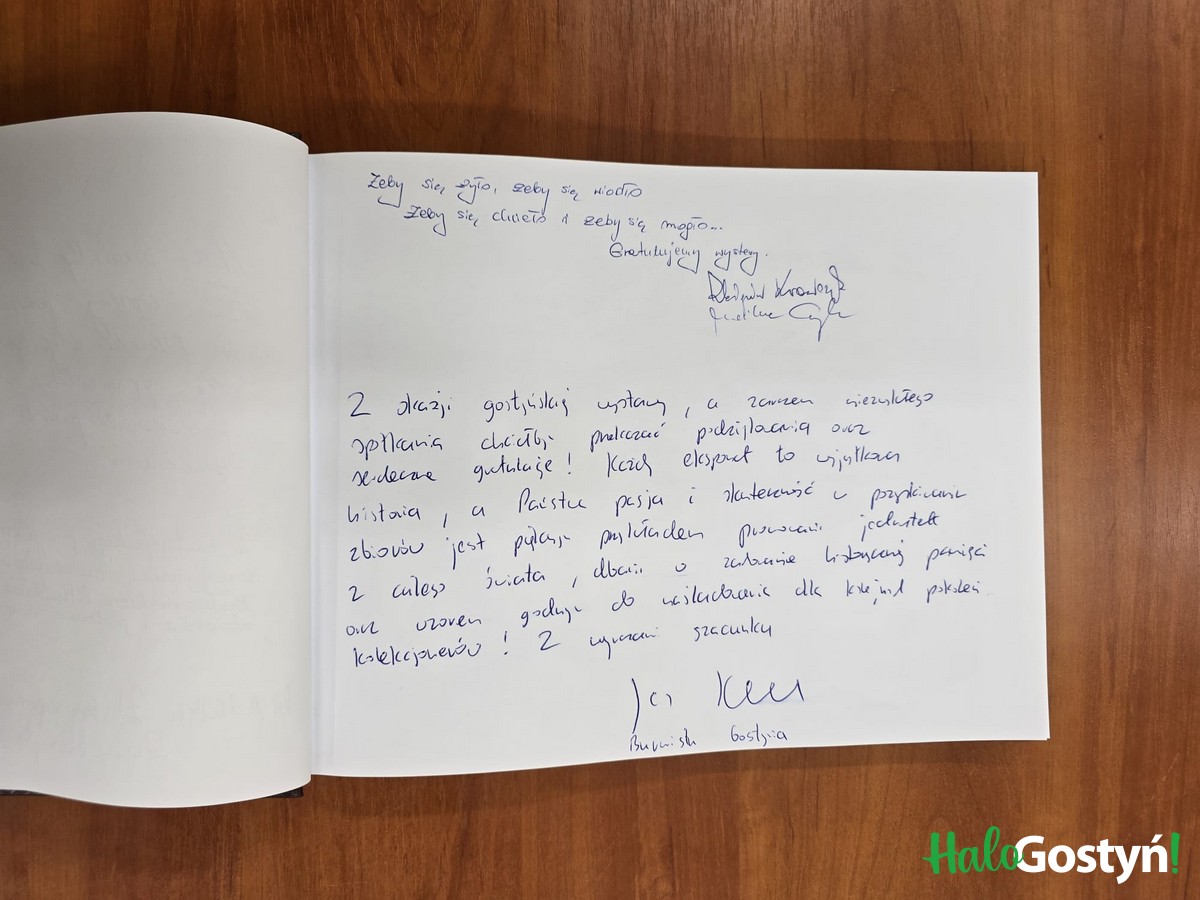 Żeby się żyło, żeby się wiodło
Żeby się chciało i żeby się mogło...
Gratulujemy wystawy.
Z okazji gostyńskiej wystawy, a zarazem niezwykłego
spotkania chciałbym przekazać podziękowania oraz
serdeczne gratulacje! Każdy eksponat to wyjątkowa
historia, a Państwa pasja i skuteczność w pozyskiwaniu
zbiorów jest pięknym przykładem jednostek
z całego świata, dbania o zachowanie historycznej pamięci
oraz wzorem godnym do naśladowania dla kolejnych pokoleń
kolekcjonerów! Z wyrazami szacunku
Burmistrz Gostynia
HaloGostyń!